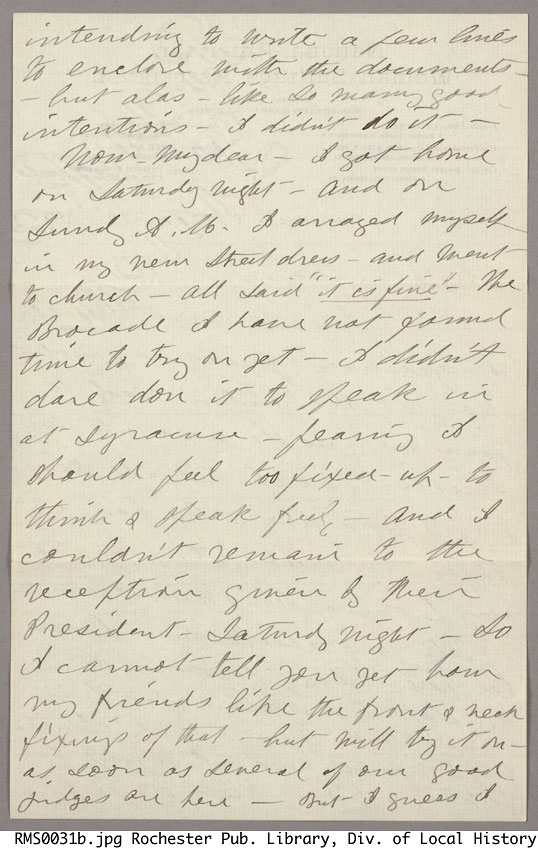 intending to write a few lines
to enclose with the documents -
- but alas - like so many good
intentions - I didn't do it -
Now - My dear - I got home
on Saturdy night - and on
Sundy A. M. I arraged myself
in my new street dress - and went
to church - all said "it is fine" - The
Brocade I have not found
time to try on yet - I didn't
dare don it to speak in
at Syracuse - fearing I
should feel too fixed-up - to
think & speak freely - and I
couldn't remain to the
reception given by their
President - Saturdy night - So
I cannot tell you yet how
my friends like the front & neck
fixings of that - but will try it on -
as soon as several of our good
judges are here - But I guess I
RMS0031b.jpg Rochester Pub. Library, Div. of Local History